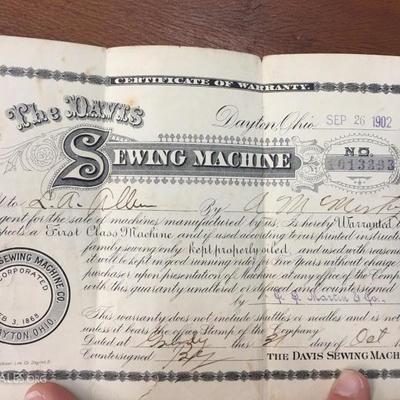 CERTIFICATE OF WARRANTY.
The DAVIS
Dayton, Ohio SEP 26 1902
SEWING MACHINE
NO.
1013293
d to L. A. Allen By A. M.
gent for the sale of machines manufactured by us, is hereby Warranted
pects a First Class Machine and if used according to our printed instruction
family sewing only kept properly oiled, and used with reason
it will be kept in good running order for Five years without charge
purchase, upon presentation of Machine at any office of the Comp
with this guaranty unaltered or defaced and countersigned
by Martin & Co.
This warranty does not include shuttles or needles and is not
unless it bears the office Stamp of the Company.
Dated at this 31 day of Oct
Countersigned
THE DAVIS SEWING MACH
SEWING MACHINE CO.
CORPORATED
FEB. 3, 1868.
DAYTON, OHIO
ALES.ORG